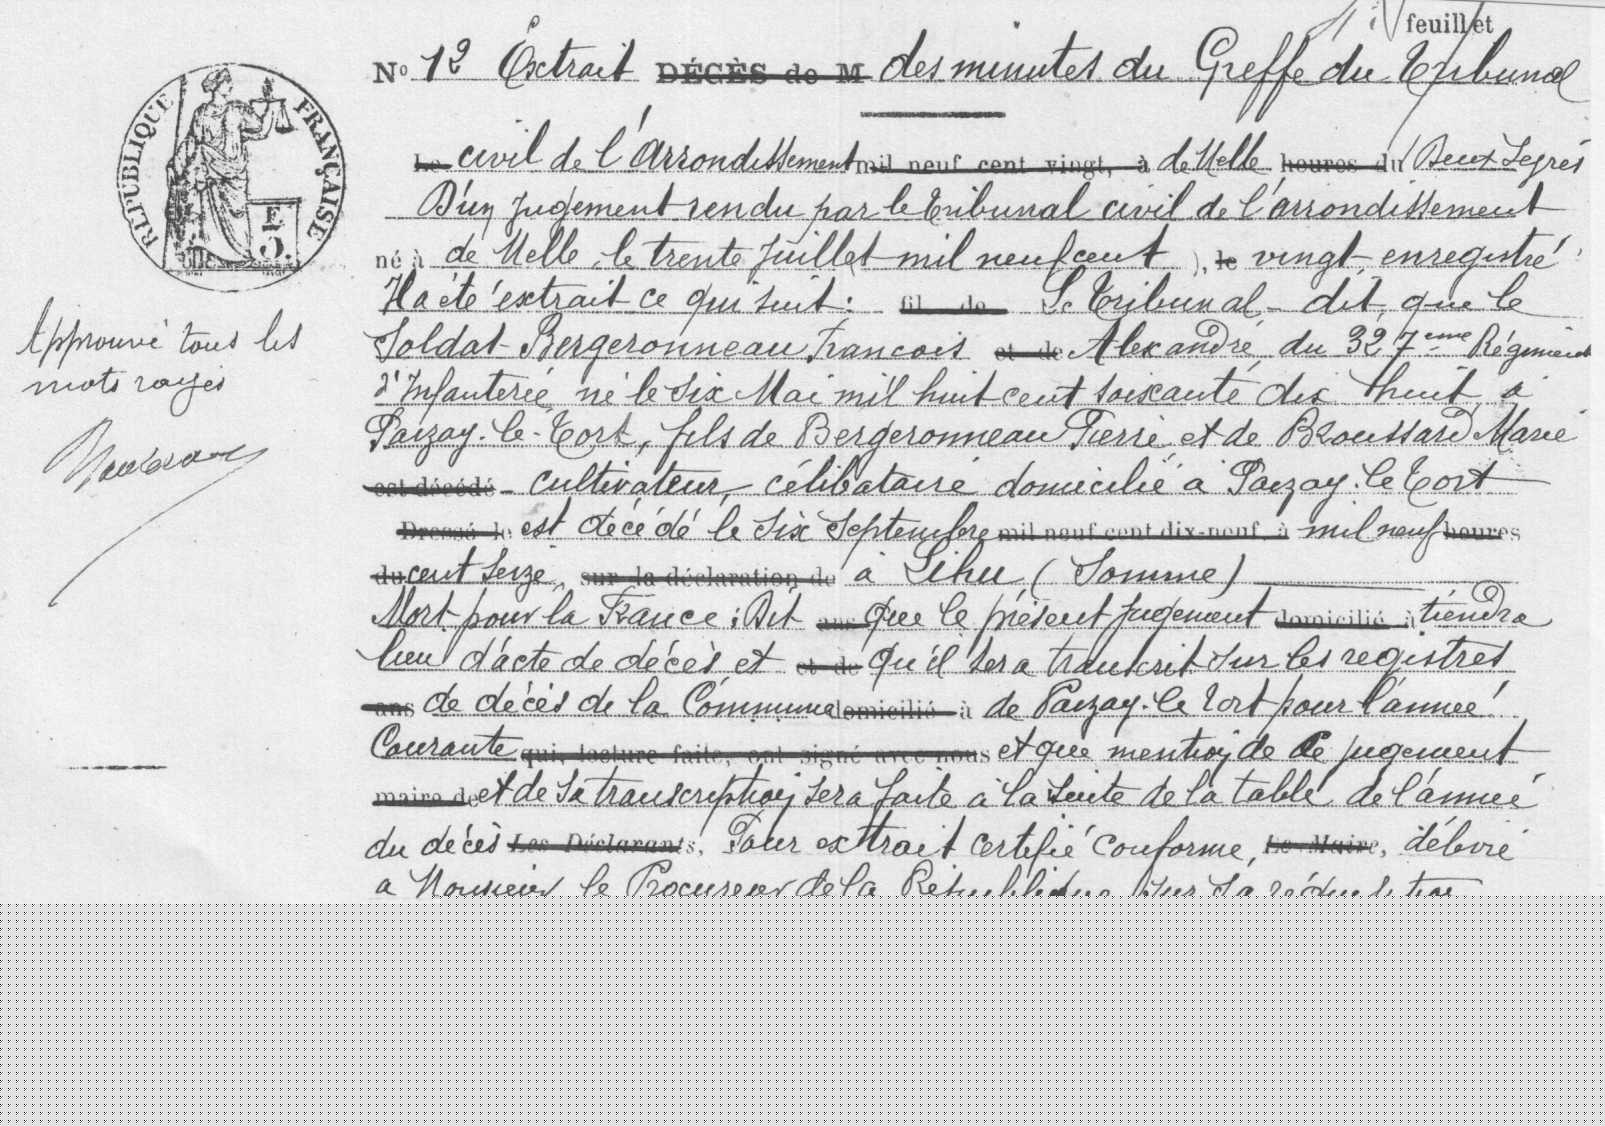 feuillet
N° 12 Extrait DÉCÈS de M des minutes du Greffe du Tribunal
RÉPUBLIQUE FRANÇAISE
Le civil de l'Arrondissement mil neuf cent vingt, à de Melle heures du (Deux Sèvres
D'un jugement rendu par le Tribunal civil de l'arrondissement
né à de Melle, le trente juillet mil neuf cent ), le vingt, enregistré,
Il a été extrait ce qui suit : fil de Le Tribunal dit que le
Soldat Bergeronneau François et de Alexandre, du 327eme Régiment
d'Infanterie né le six Mai mil huit cent soixante dix huit, à
Paizay-le-Tort, fils de Bergeronneau Pierre et de Broussard Marie
est décédé - cultivateur, célibataire domicilié à Paizay-le Tort
Dressé le est décédé le six Septembre mil neuf cent dix-neuf, à mil neuf heures
du cent seize, sur la déclaration de à Lihu (Somme)
Mort pour la France ; Dit ans que le présent jugement domicilié à tiendra
lieu d'acte de décès et et de qu'il sera transcrit sur les registres
ans de décès de la Commune domicilié à de Paizay-le Tort pour l'année
Courante qui, lecture faite, ont signé avec nous et que mention de ce jugement
maire de et de sa transcription sera faite à la suite de la table de l'année
du décès Les Déclarants, Pour extrait certifié conforme, Le Maire, délivré
a Monsieur le Procureur de la République sur sa réquisition
Approuvé tous les
mots rayés